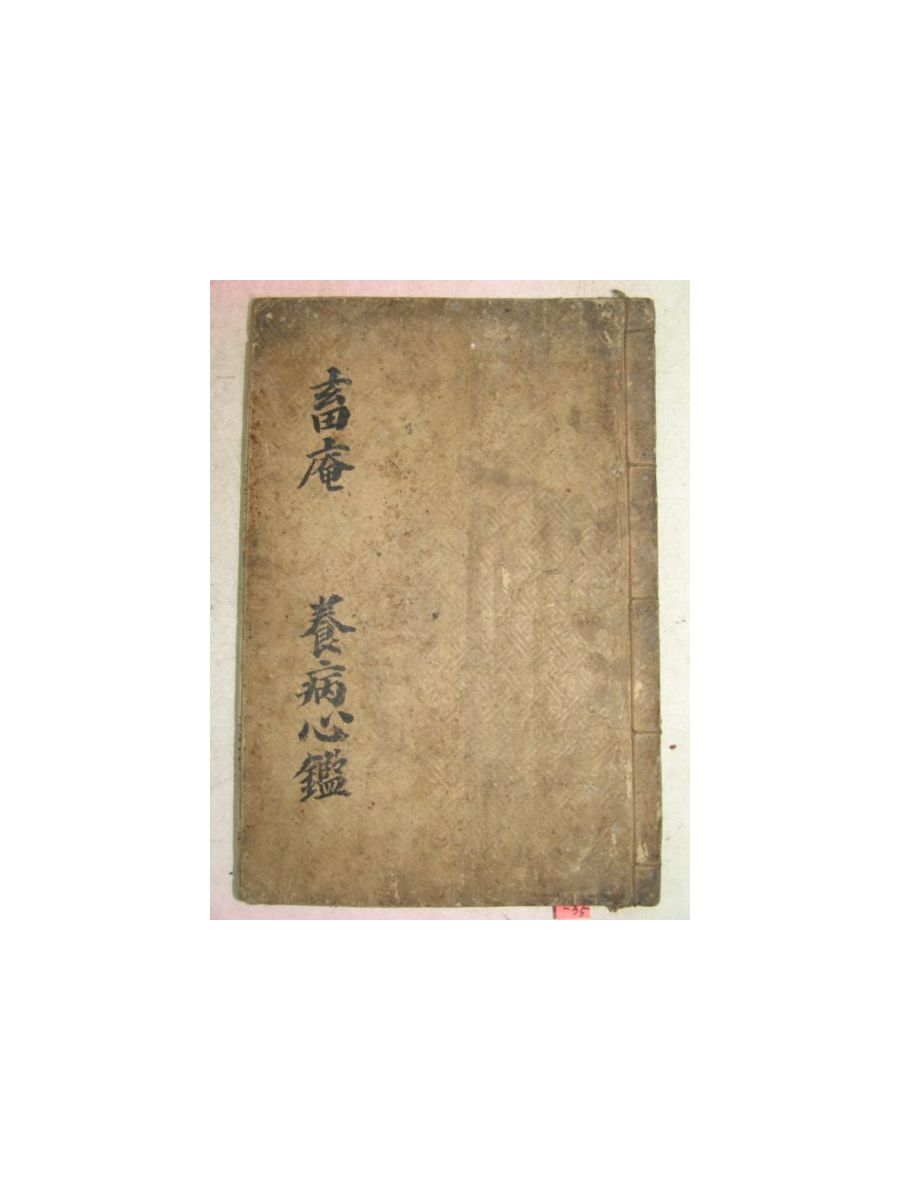 畜庵
養病心鑑
-35